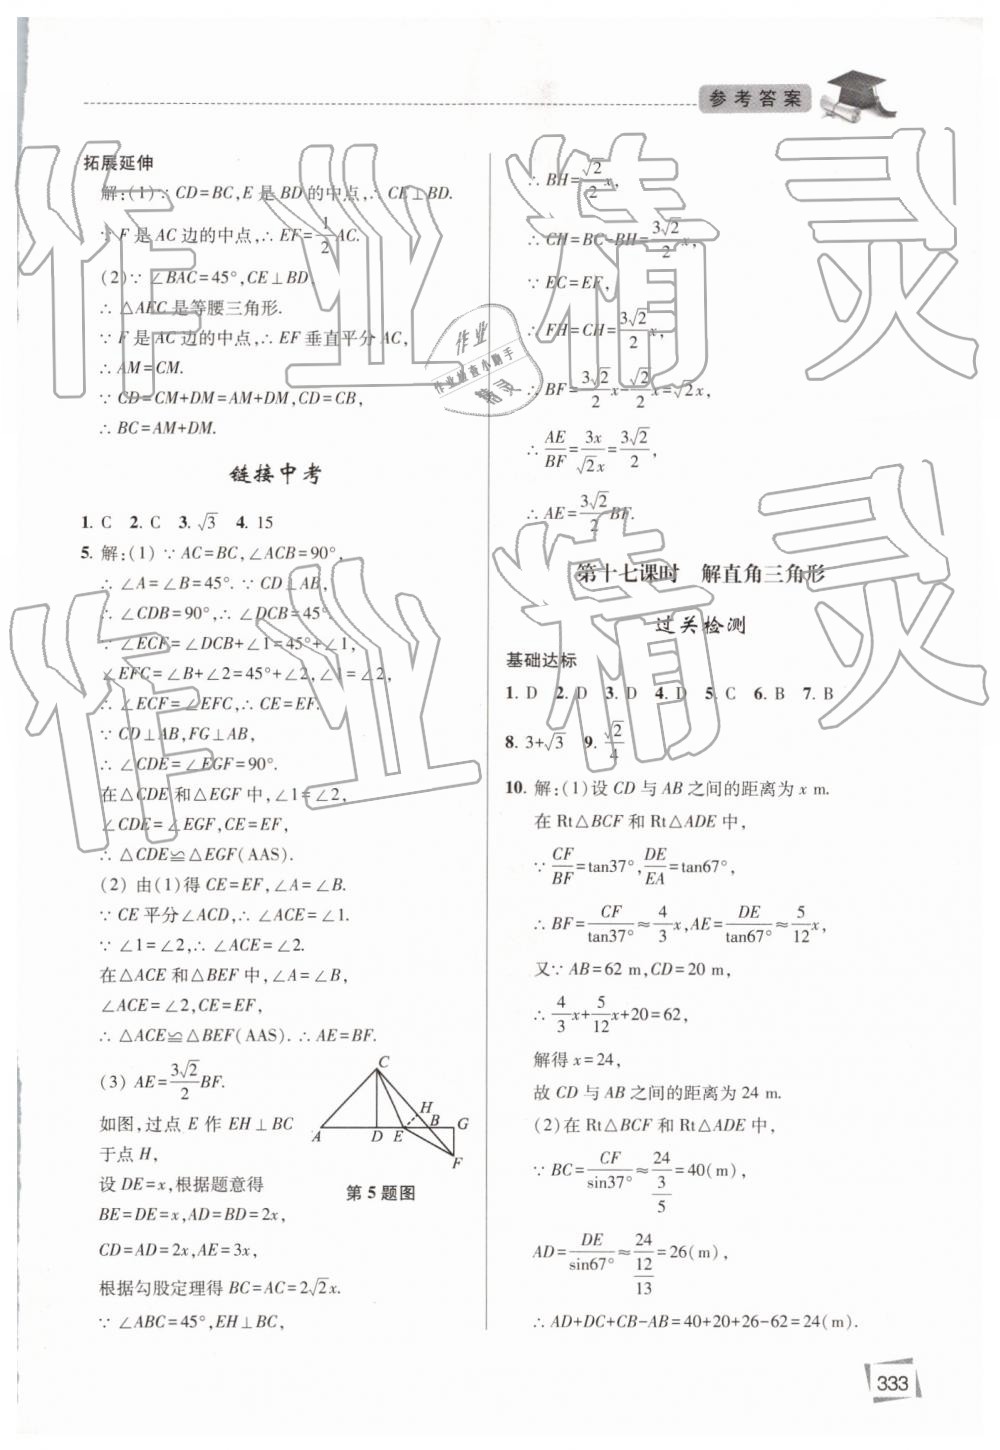 参考答案
拓展延伸
解:(1)∵ CD=BC,E 是 BD 的中点,∴ CE⊥BD.
∵ F 是 AC 边的中点,∴ EF=1/2 AC.
(2)∵ ∠BAC=45°,CE⊥BD,
∴ △AEC 是等腰三角形.
∵ F 是 AC 边的中点,∴ EF 垂直平分 AC,
∴ AM=CM.
∵ CD=CM+DM=AM+DM,CD=CB,
∴ BC=AM+DM.
链接中考
1. C 2. C 3. √3 4. 15
5. 解:(1) ∵ AC=BC,∠ACB=90°,
∴ ∠A=∠B=45°. ∵ CD⊥AB,
∴ ∠CDB=90°,∴ ∠DCB=45°.
∵ ∠ECF=∠DCB+∠1=45°+∠1,
∠EFC=∠B+∠2=45°+∠2,∠1=∠2,
∴ ∠ECF=∠EFC,∴ CE=EF.
∵ CD⊥AB,FG⊥AB,
∴ ∠CDE=∠EGF=90°.
在△CDE 和△EGF 中,∠1=∠2,
∠CDE=∠EGF,CE=EF,
∴ △CDE≌△EGF(AAS).
(2) 由(1)得 CE=EF,∠A=∠B.
∵ CE 平分∠ACD,∴ ∠ACE=∠1.
∵ ∠1=∠2,∴ ∠ACE=∠2.
在△ACE 和△BEF 中,∠A=∠B,
∠ACE=∠2,CE=EF,
∴ △ACE≌△BEF(AAS). ∴ AE=BF.
(3) AE=3√2/2 BF.
如图,过点 E 作 EH⊥BC
于点 H,
设 DE=x,根据题意得
BE=DE=x,AD=BD=2x,
CD=AD=2x,AE=3x,
根据勾股定理得 BC=AC=2√2x.
∵ ∠ABC=45°,EH⊥BC,
C
H
A D E B G
F
第 5 题图
∴ BH=√2/2 x,
∴ CH=BC-BH=3√2/2 x,
∵ EC=EF,
∴ FH=CH=3√2/2 x,
∴ BF=3√2/2 x-√2/2 x=√2x,
∴ AE/BF=3x/√2x=3√2/2,
∴ AE=3√2/2 BF.
第十七课时 解直角三角形
过关检测
基础达标
1. D 2. D 3. D 4. D 5. C 6. B 7. B
8. 3+√3 9. √2/4
10. 解:(1)设 CD 与 AB 之间的距离为 x m.
在 Rt△BCF 和 Rt△ADE 中,
∵ CF/BF=tan37°,DE/EA=tan67°,
∴ BF=CF/tan37°≈4/3 x,AE=DE/tan67°≈5/12 x,
又∵ AB=62 m,CD=20 m,
∴ 4/3 x+5/12 x+20=62,
解得 x=24,
故 CD 与 AB 之间的距离为 24 m.
(2)在 Rt△BCF 和 Rt△ADE 中,
∵ BC=CF/sin37°≈24/(3/5)=40(m),
AD=DE/sin67°≈24/(12/13)=26(m),
∴ AD+DC+CB-AB=40+20+26-62=24(m).
333
作业精灵
作业精灵
作业
作业检查小助手
精灵